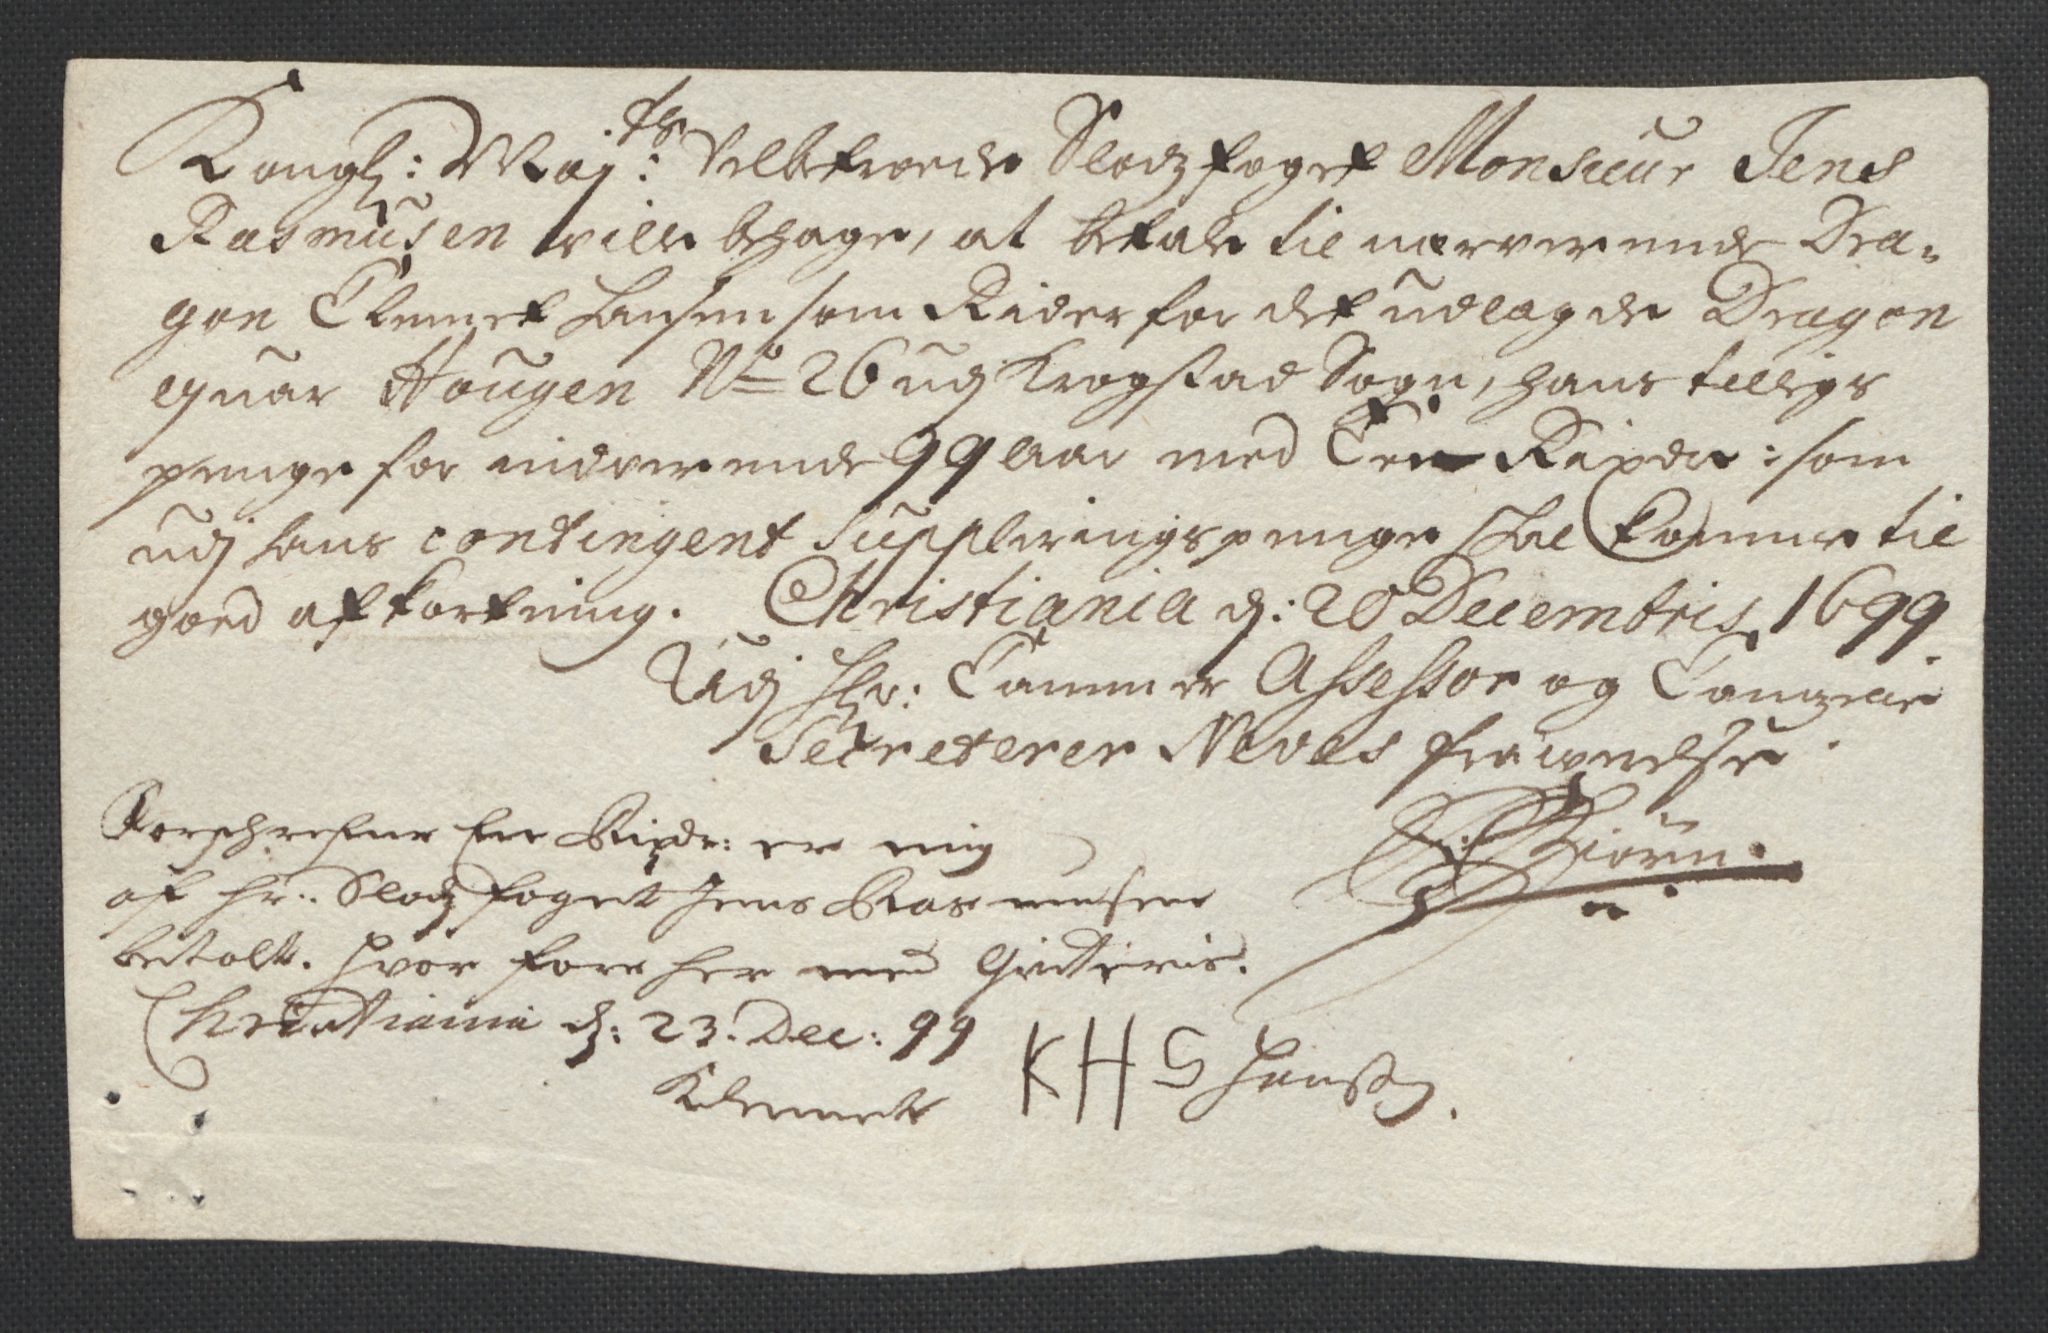 Kongl: Maj:ts Velbetroede Slodzfoget Monsieur Jens
Rasmusen ville behage, at betale til nærverende Dra-
gon Clemet Hansen som Rider for det udlagde Dragon
quar Hougen No 26 udj Krogstad Sogn, hans tillegs
penge for nidverende 99 aar med Een Rixdr: som
udj hans contingent Suppleringspenge skal komme til
goed afkortning. Christiania d: 20 Decembris 1699
Udj Hr: Cammer Assessor og Cancelie
Secreterer Neves fraværelse
Biørn.
Forschrefne Een Rixdr: er mig
af hr: Slodzfoget Jens Rasmusen
betalt. hvor fore her med Qvitteris.
Christiania d: 23. Dec: 99
Klemet KHS Hansen.